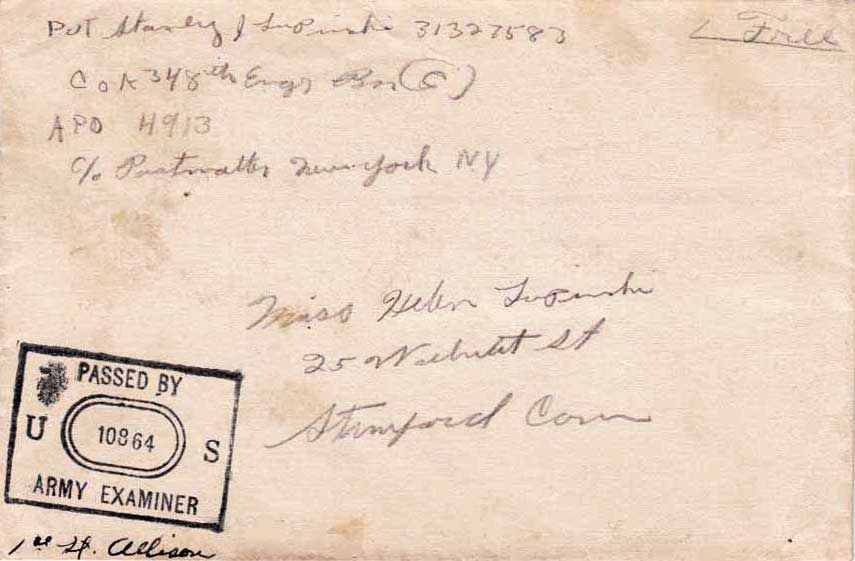 Pvt Stanley J Lupinski 31327583
Free
Co A 348th Engr Bn (C)
APO 4913
c/o Postmaster New York NY
Miss Helen Lupinski
25 St
Stamford Conn
PASSED BY
U 10864 S
ARMY EXAMINER
1st Lt. Allison